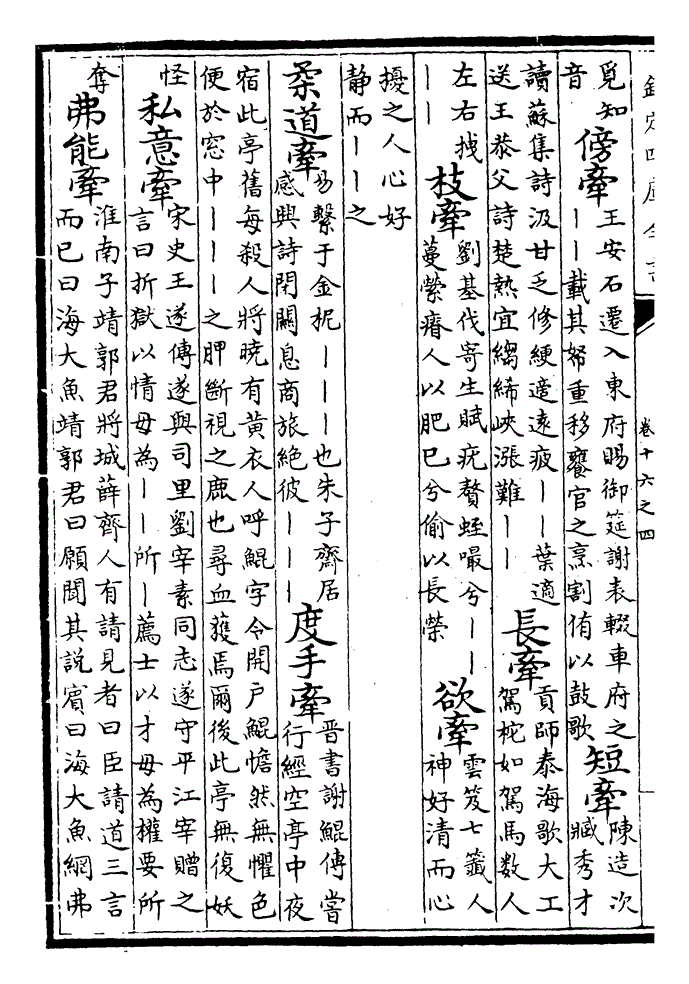 欽定四庫全書 卷十六之四
覓知
音
傍牽
王安石遷入東府賜御筵謝表輟車府之
——載其帑重移饔官之烹割侑以鼓歌
短牽
陳造次
臧秀才
讀蘇集詩汲甘乏修綆適遠疲——葉適
送王恭父詩楚熱宜縐絺峽漲難——
長牽
貢師泰海歌大工
駕柁如駕馬数人
左右拽
——
枝牽
劉基伐寄生賦疣贅蛭嘬兮——
蔓縈瘠人以肥已兮偷以長榮
欲牽
雲笈七籤人
神好清而心
擾之人心好
静而——之
柔道牽
易繫于金柅———也朱子齋居
感興詩閉關息商旅絶彼———
度手牽
晋書謝鯤傳嘗
行經空亭中夜
宿此亭舊每殺人將曉有黄衣人呼鯤字令開户鯤憺然無懼色
便於窓中———之胛斷視之鹿也尋血獲焉爾後此亭無復妖
怪
私意牽
宋史王遂傳遂與司里劉宰素同志遂守平江宰贈之
言曰折獄以情毋為——所—薦士以才毋為權要所
奪
弗能牽
淮南子靖郭君將城薛齊人有請見者曰臣請道三言
而已曰海大魚靖郭君曰願聞其説賓曰海大魚網弗